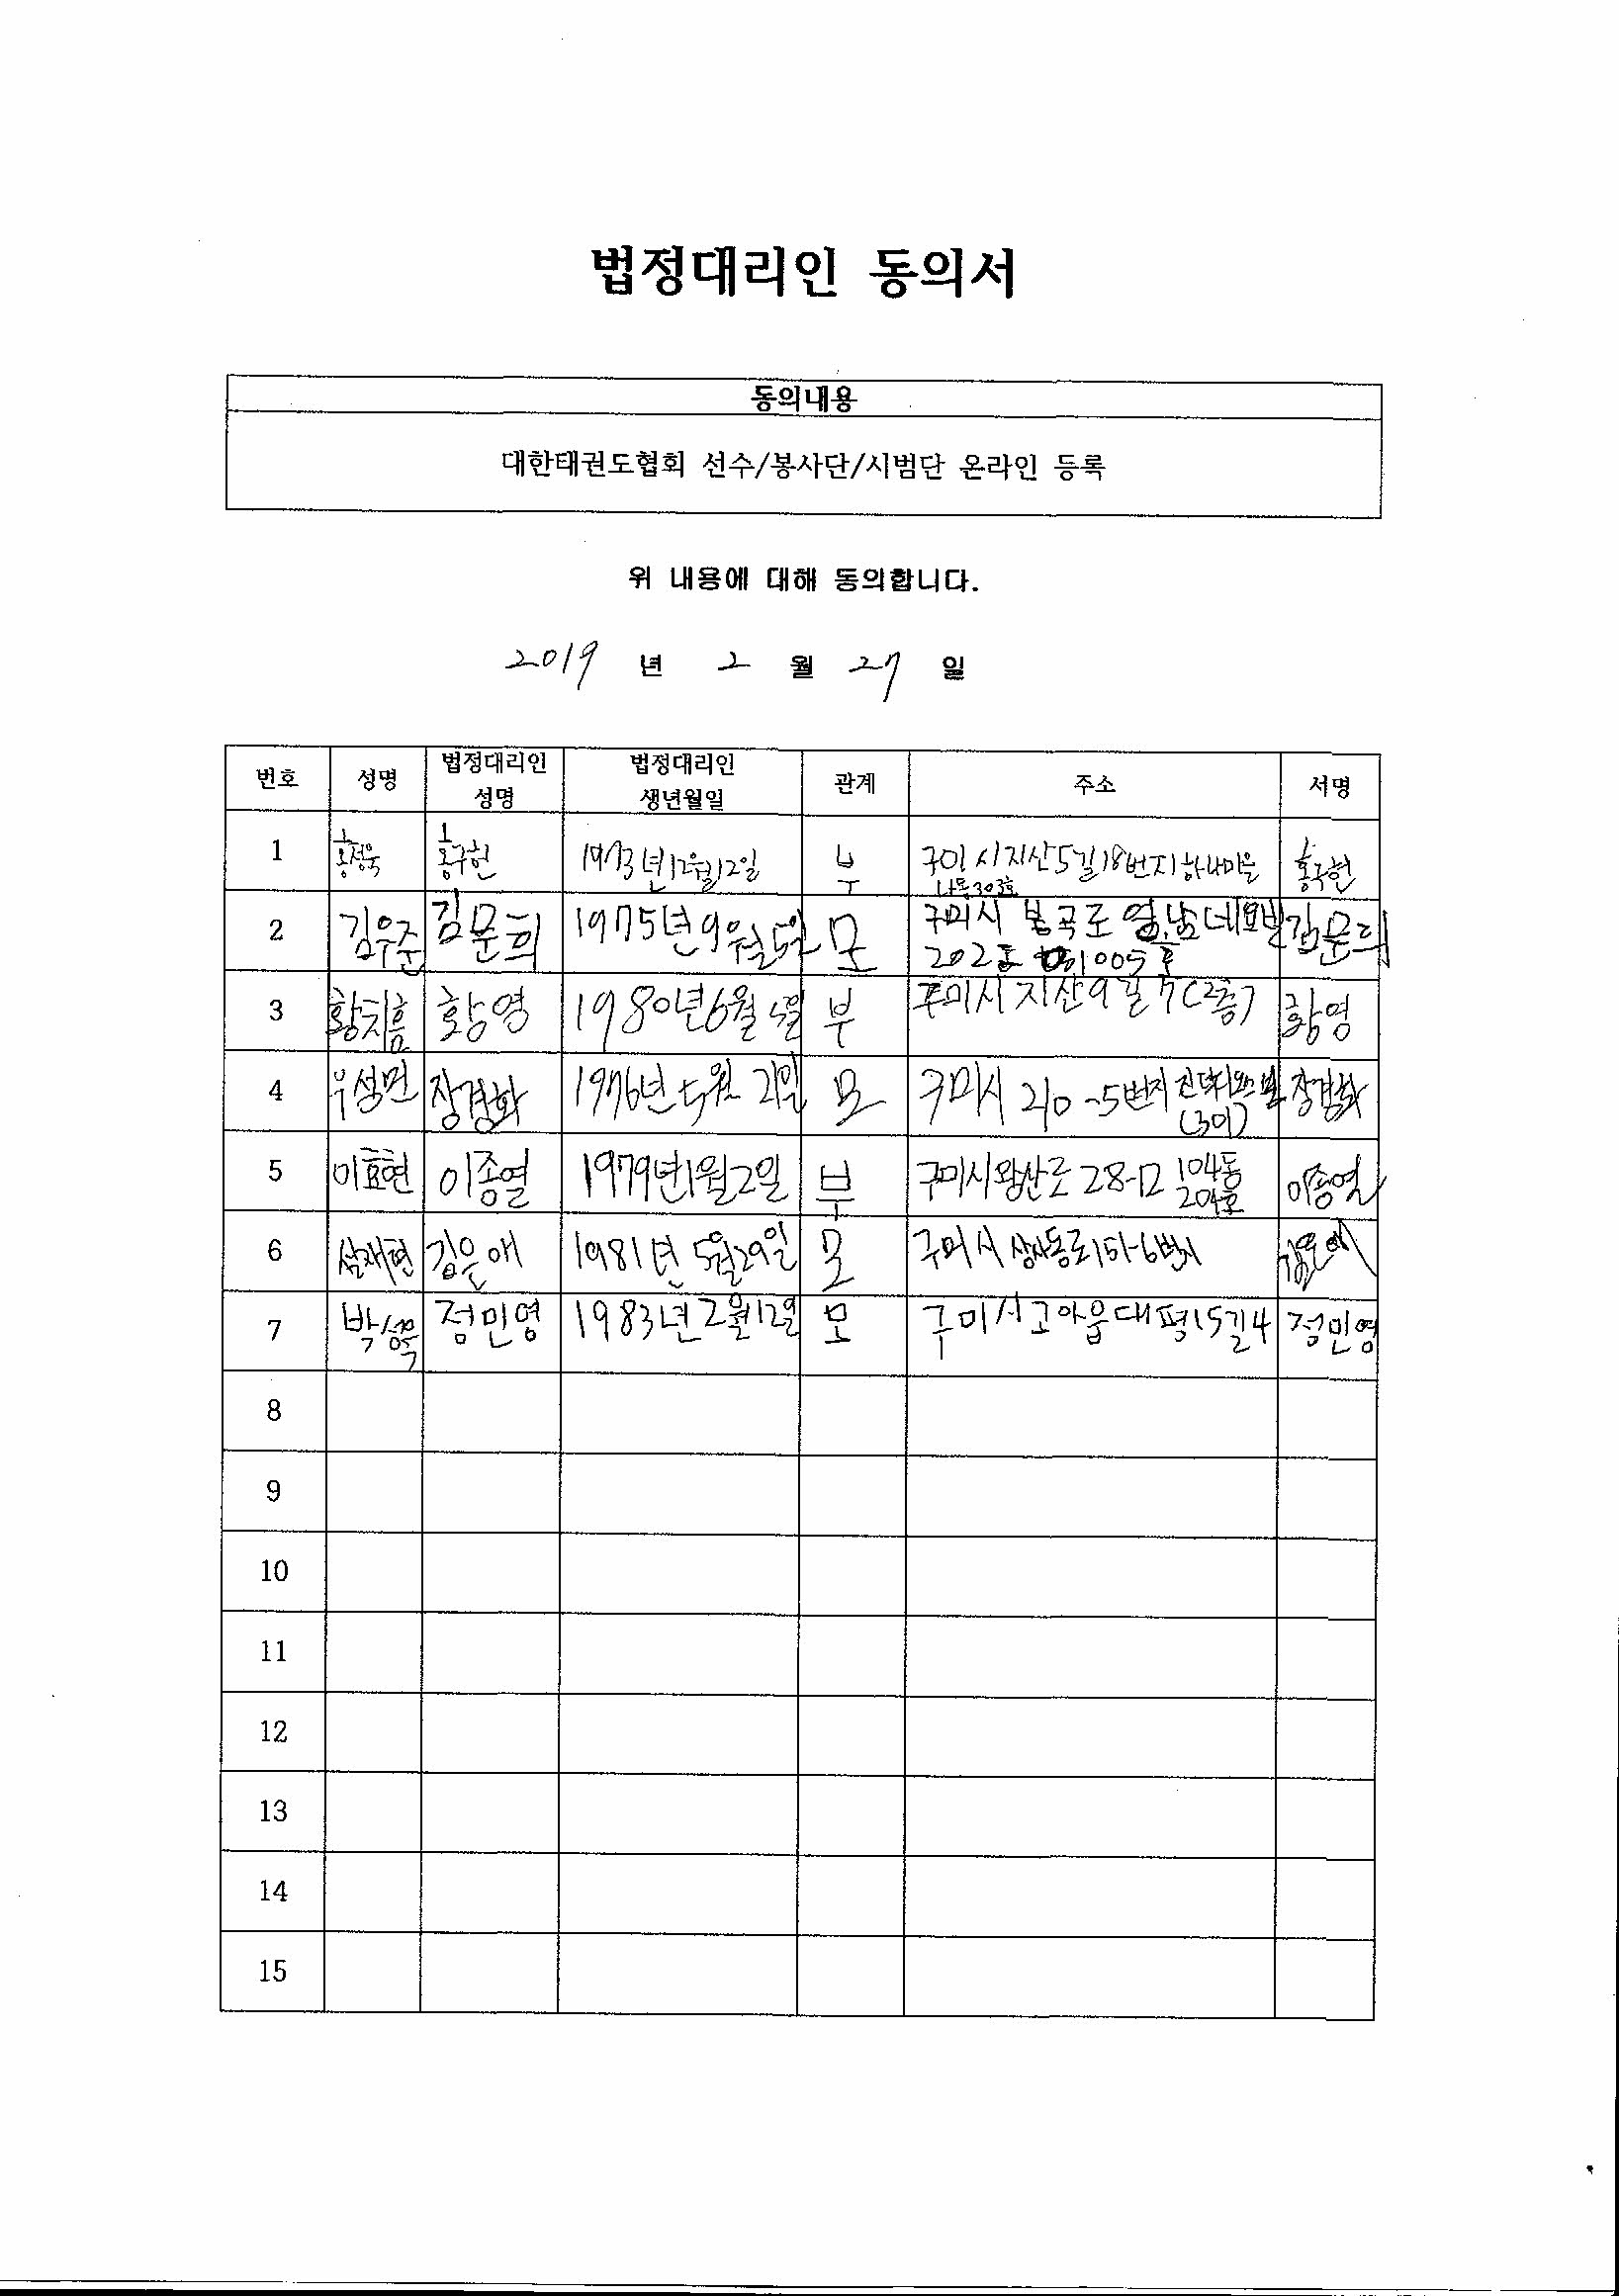 법정대리인 동의서
동의내용
대한태권도협회 선수/봉사단/시범단 온라인 등록
위 내용에 대해 동의합니다.
2019 년 2 월 27 일
번호 성명 법정대리인 성명 법정대리인 생년월일 관계 주소 서명
1 홍정욱 홍구헌 1973년12월12일 부 구미시지산5길18번지하나마을 홍구헌
나동303호
2 김우준 김문희 1975년9월5일 모 구미시 봉곡로 영남네오빌 김문희
202동 1005호
3 황치흠 황영 1980년6월4일 부 구미시 지산9길 7(2층) 황영
4 우성민 장경화 1976년5월 21일 모 구미시 210-5번지 장경화
(301)
5 이효현 이종열 1979년1월2일 부 구미시왕산로 28-12 104동 이종열
204호
6 김은애 1981년 5월29일 모 구미시 상사동로151-6번지 김은애
7 박성욱 정민영 1983년2월12일 모 구미시고아읍대평15길4 정민영
8
9
10
11
12
13
14
15